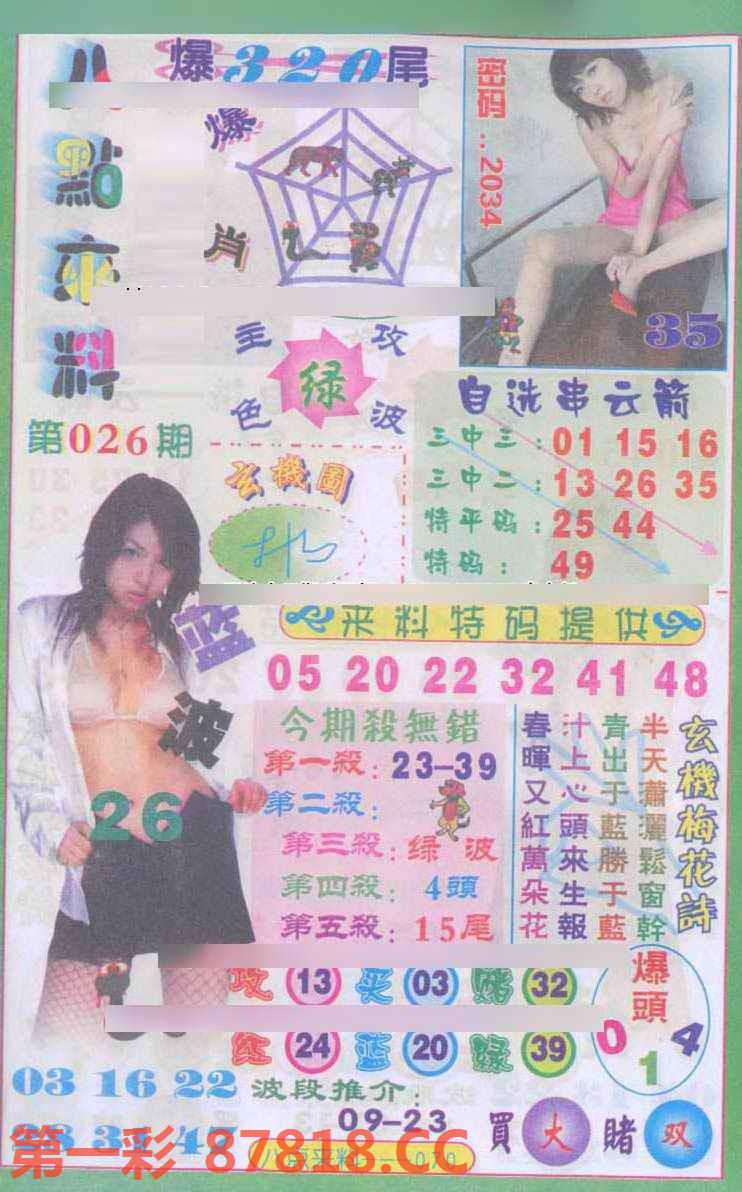 爆320尾
八點來料
爆肖
密码..2034
35
主攻
绿
色波
第026期
玄機圖
自选串云箭
三中三:01 15 16
三中二:13 26 35
特平码:25 44
特码:49
蓝波
26
来料特码提供
05 20 22 32 41 48
今期殺無錯
第一殺:23-39
第二殺:
第三殺:绿波
第四殺:4頭
第五殺:15尾
玄機梅花詩
半天蕭灑鬆窗幹
青出于藍勝于藍
汁上心頭來生報
春暉又紅萬朵花
攻 13 买 03 赌 32
红 24 蓝 20 绿 39
爆頭
0 1 4
03 16 22
波段推介:
09-23
買大賭双
第一彩 87818.CC